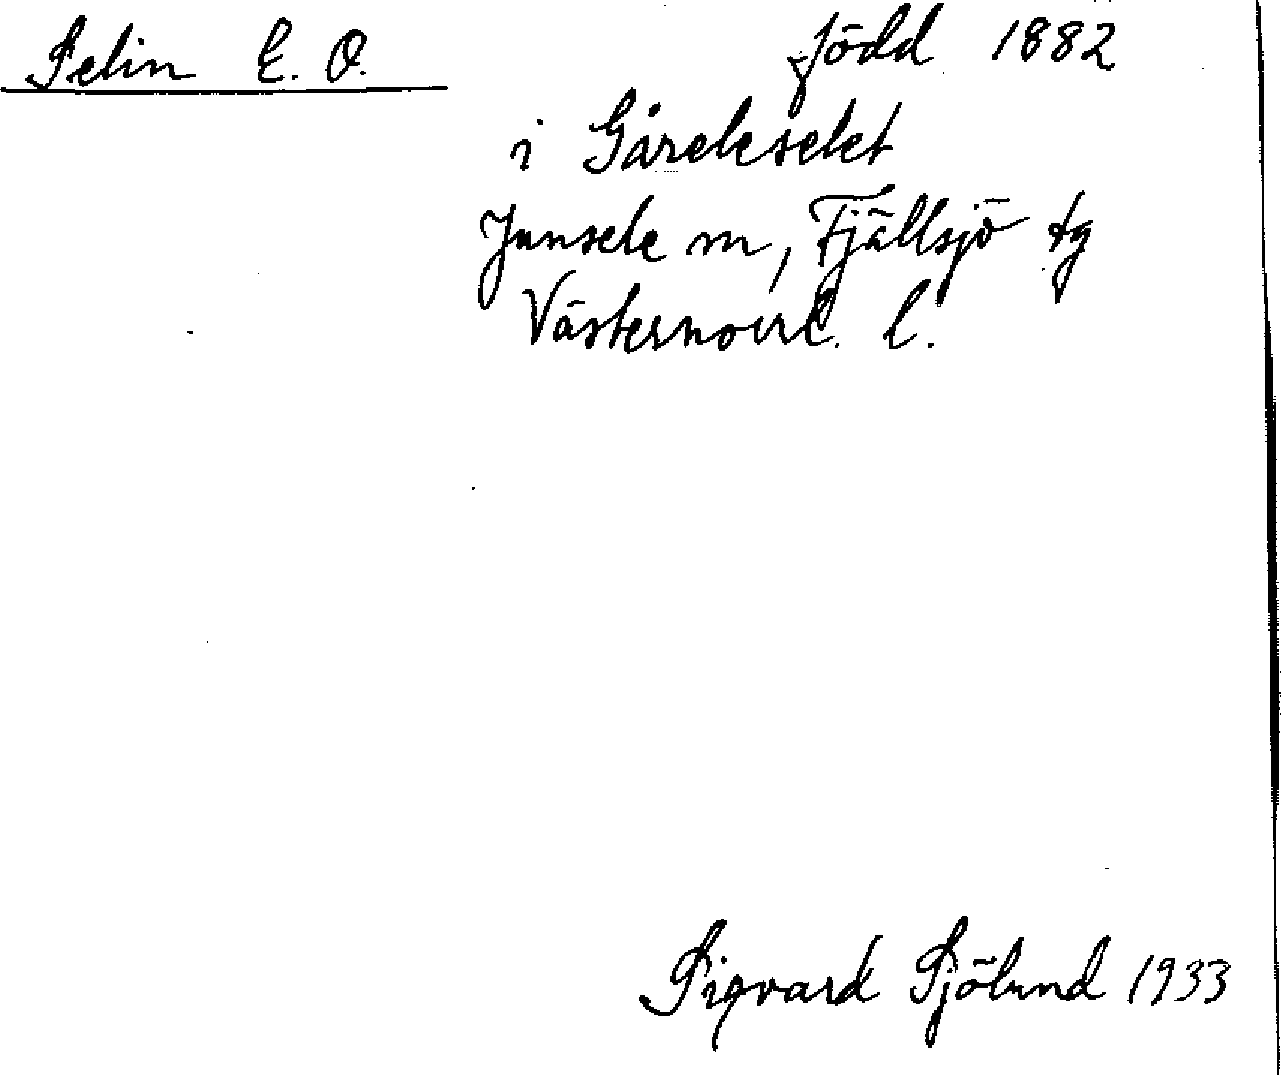 Selin E. O.
född 1882
i Gåreleselet
Junsele m, Fjällsjö tg
Västernorrl. l.
Sigvard Sjölund 1933